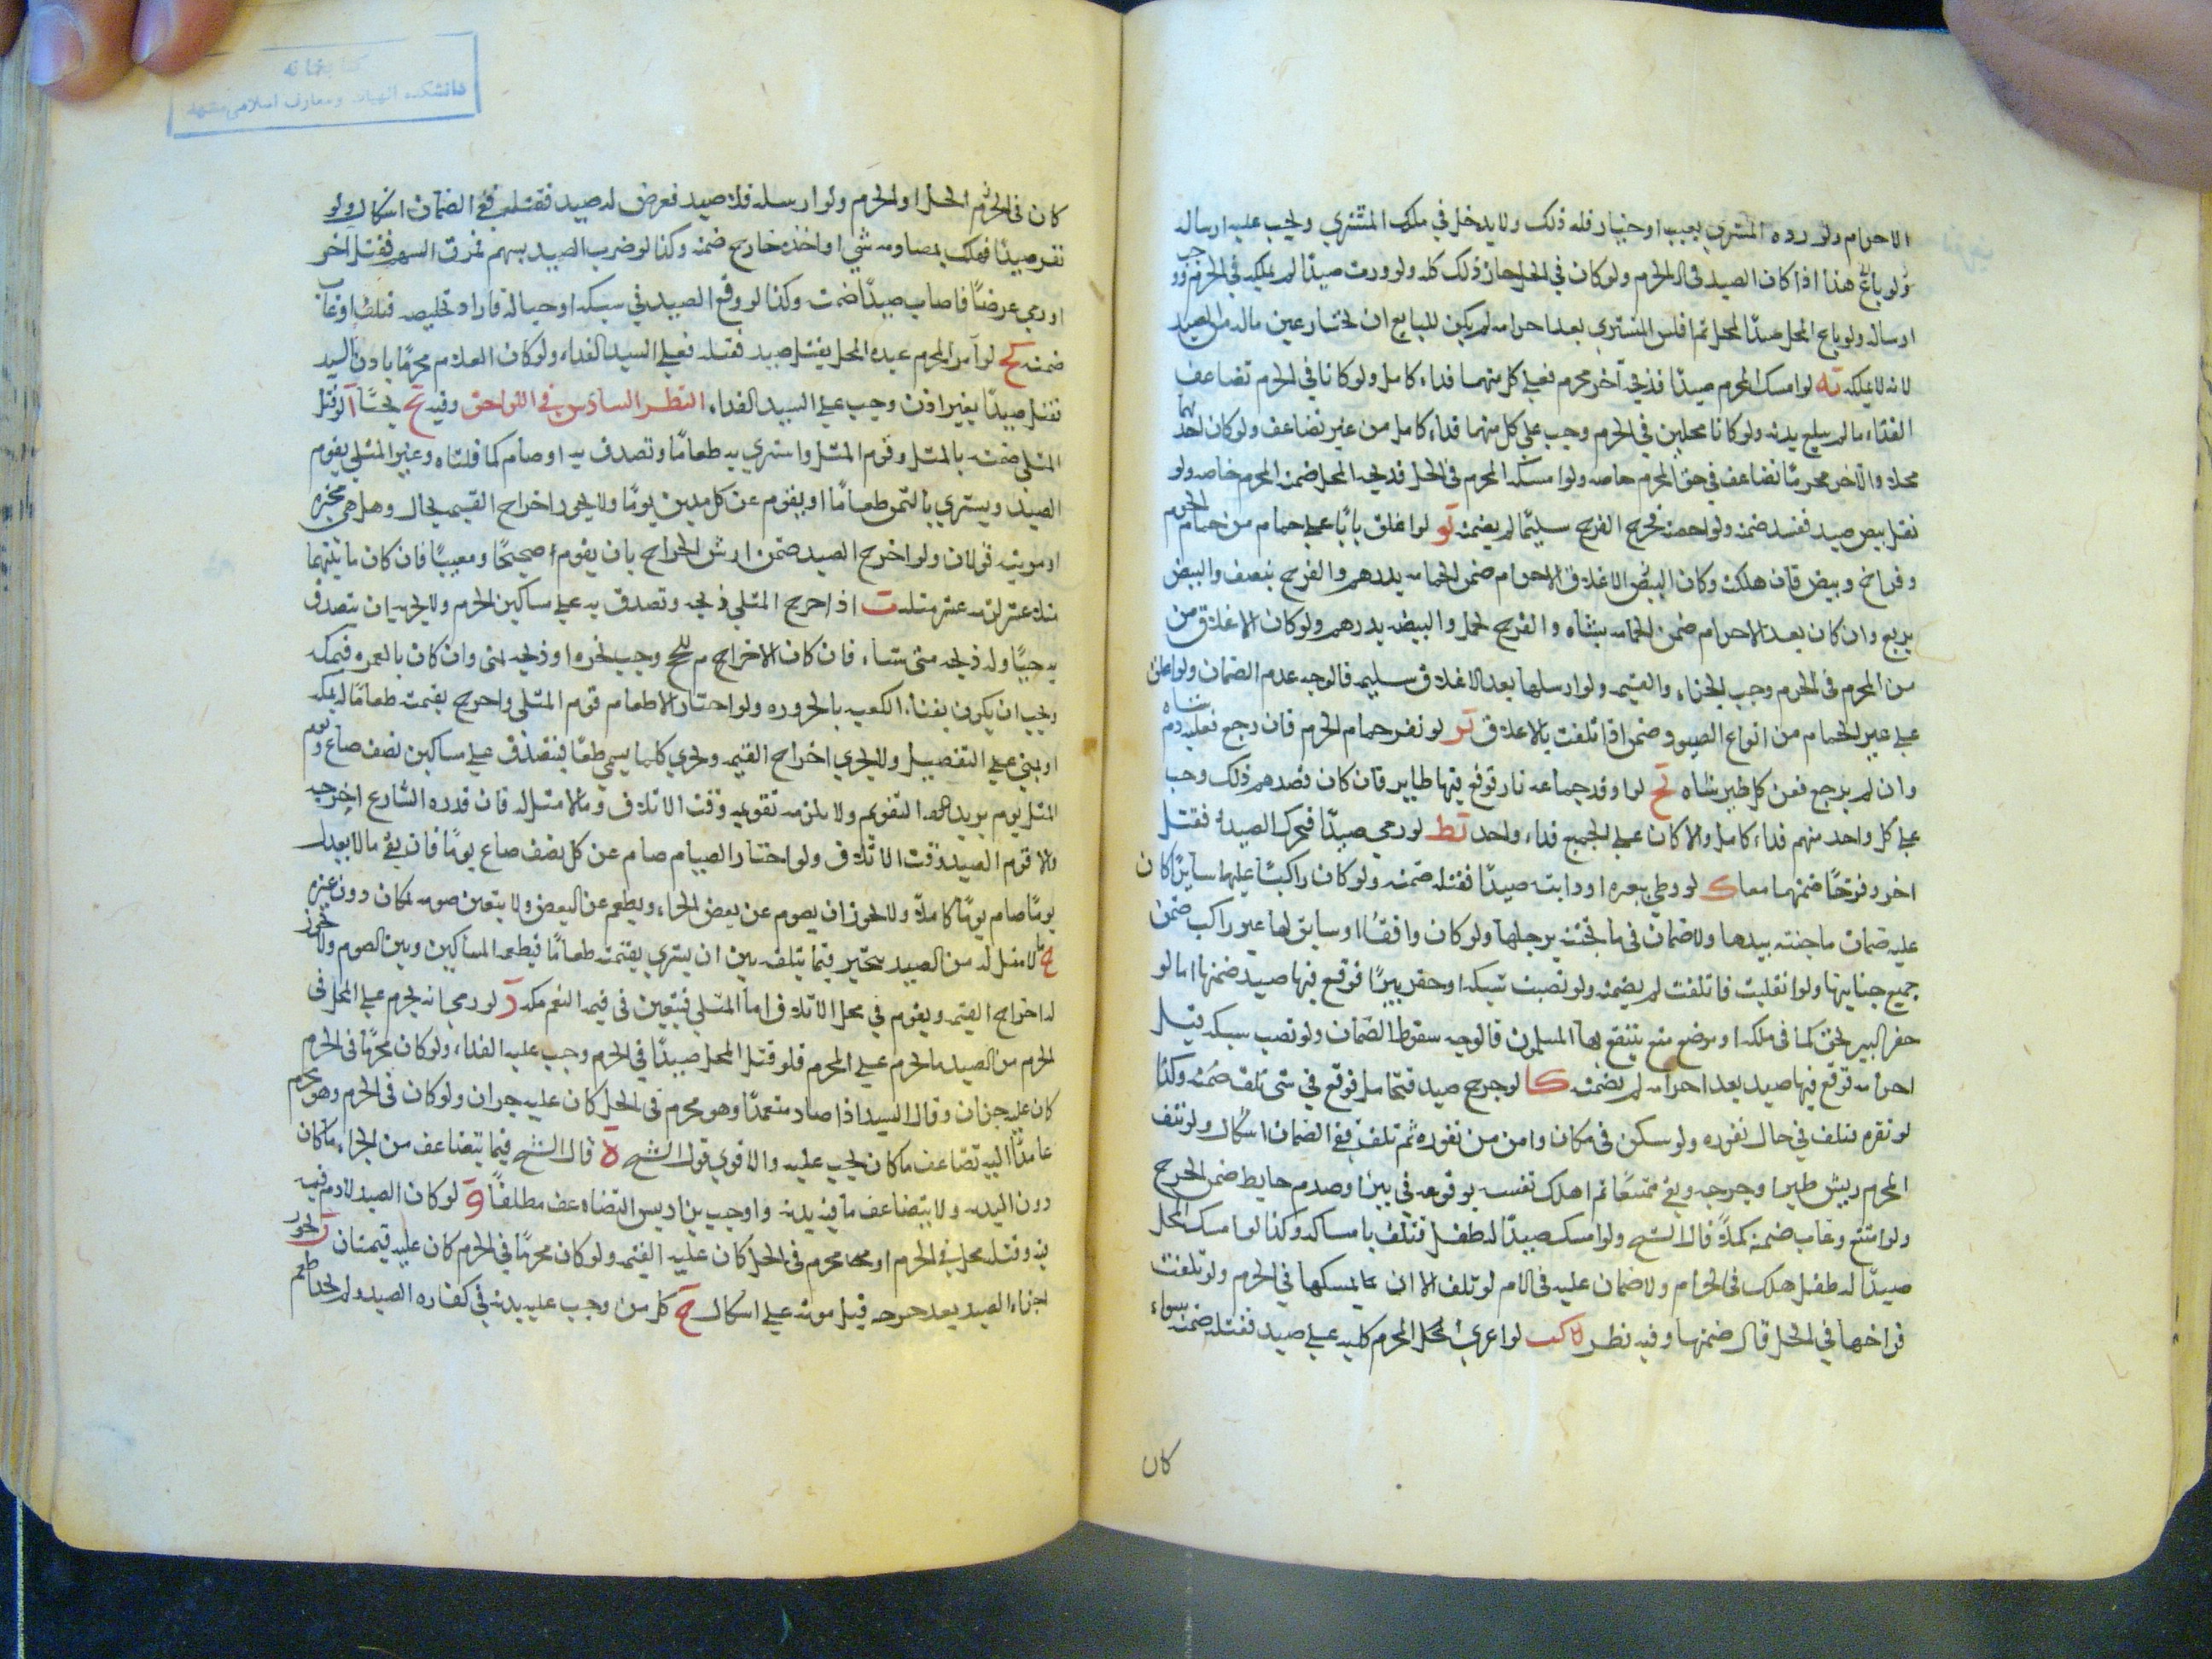 الاحرام ولو رده المشتري بعيب او خيار فله ذلك ولا يدخل في ملك المشتري ويجب عليه ارساله
ولو باع هذا اذا كان الصيد في الحرم ولو كان في الحل جاز ذلك كله ولو ورث صيدًا لم يملكه في الحرم ووجب
ارساله ولو باع المحل صيدًا لمحل ثم افلس المشتري بعد احرامه لم يكن للبايع ان يختار عين ماله من الصيد
لانه لا يملكه يه لو امسك المحرم صيدًا فذبحه آخر محرم فعلى كل منهما فداء كامل ولو كانا في الحرم تضاعف
الفداء ما لم يبلغ بدنه ولو كانا محلين في الحرم وجب على كل منهما فداء كامل من غير تضاعف ولو كان احدهما
محلا والآخر محرمًا تضاعف في حق المحرم خاصه ولو امسكه المحرم في الحل فذبحه المحل ضمن المحرم خاصه ولو
نقل بيض صيد ففسد ضمنه ولو احضنه فخرج الفرخ سليمًا لم يضمنه يو لو اغلق بابًا على حمام من حمام الحرم
وفراخ وبيض فان هلكت وكان الاغلاق قبل الاحرام ضمن الحمامه بدرهم والفرخ بنصف والبيض
بربع وان كان بعد الاحرام ضمن الحمامه بشاه والفرخ بحمل والبيضه بدرهم ولو كان الاغلاق من
من المحرم في الحرم وجب الجزاء والقيمه ولو ارسلها بعد الاغلاق سليمه فالوجه عدم الضمان ولو اغلق
على غير الحمام من انواع الصيود ضمن اذا تلفت بالاغلاق يز لو نفر حمام الحرم فان رجع فعليه دم شاه
وان لم يرجع فعن كل طير شاه يح لو اوقد جماعه نارًا فوقع فيها طاير فان كان قصدهم ذلك وجب
على كل واحد منهم فداء كامل والا كان على الجميع فداء واحد يط لو رمى صيدًا فتحرك الصيد فقتل
اخر وفرخًا ضمنهما معا ك لو وطي ببعيره او دابته صيدًا فقتله ضمنه ولو كان راكبًا عليها سايرًا كان
عليه ضمان ما جنته بيدها ولا ضمان في ما تجنته برجلها ولو كان واقفًا او سايق لها غير راكب ضمن
جميع جنايتها ولو انفلتت فاتلفت لم يضمنه ولو نصبت شبكه او حفر بيرًا فوقع فيها صيد ضمنها اما لو
حفر البير بحق كما في ملكه او موضع ينتفع بها المسلمون فالوجه سقوط الضمان ولو نصب شبكه قبل
احرامه فوقع فيها صيد بعد احرامه لم يضمنه كا لو جرح صيد فتحامل فوقع في شي تلف ضمنه وكذا
لو نفره فتلف في حال نفوره ولو سكن في مكان وامن من نفوره ثم تلف ففي الضمان اشكال ولو نتف
المحرم ريش طير او جرحه وبقي ممتنعًا ثم اهلك نفسه بوقوعه في بير او صدم حايط ضمن الجرح
ولو امتنع وغاب ضمنه كملا قال الشيخ ولو امسك صيدًا له طفل فتلف بامساكه وكذا لو امسك المحل
صيدًا له طفل هلك في الحرام ولا ضمان عليه في الام لو تلف الا ان يمسكها في الحرم ولو تلفت
فراخها في الحل قال ضمنها وفيه نظر كب لو اغرى المحرم كلبه على صيد فقتله ضمنه سواء
كان
كان في الحرم الحل او الحرم ولو ارسله فلا صيد فعرض له صيد فقتله ففي الضمان اشكال ولو
نفر صيدًا فهلك بمصادمه شي او اخذه جارح ضمنه وكذا لو ضرب الصيد بسهم فمرق السهم فقتل آخر
او رمى عرضًا فاصاب صيدًا ضمنه وكذا لو وقع الصيد في شبكه او حباله فاراد تخليصه فتلف او غاب
ضمنه كج لو أمر المحرم عبده المحل بقتل صيد فقتله فعلى السيد الفداء ولو كان الغلام محرمًا باذن السيد
فقتل صيدًا بغير اذن وجب على السيد الفداء النظر السادس في اللواحق وفيه يح بحثًا ا لو قتل
المثلي ضمنه بالمثل وقوم المثل واشترى به طعامًا وتصدق به او صام كما قلناه وغير المثلي يقوم
الصيد ويشتري بالثمن طعامًا او يصوم عن كل مدين يومًا ولا يجوز اخراج القيمه بحال وهل هي مخيره
او مرتبه قولان ولو اخرج الصيد ضمن ارش الجراح بان يقوم صحيحًا ومعيبًا فان كان ما بينهما
مثلا عشر لزمه عشر مثله ب اذا اخرج المثلي ذبحه وتصدق به على مساكين الحرم ولا يجزيه ان يتصدق
به حيًا وله ذبحه متى شاء فان كان الاخراج للحج وجب نحره او ذبحه بمنى وان كان بالعمره فبمكه
ويجب ان يكون بفناء الكعبه بالحزوره ولو اختار الاطعام قوم المثلي واخرج بقيمته طعامًا بمكه
او بمنى على التفصيل ولا يجزي اخراج القيمه ويجزي كلما يسمى طعامًا فيتصدق على مساكين نصف صاع وتقوم
المثل يوم يريد التقويم ولا يلزمه تقويمه وقت الاتلاف وما لا مثل له فان قدره الشارع اخرجه
والا قوم الصيد وقت الاتلاف ولو اختار الصيام صام عن كل نصف صاع يومًا فان بقي ما لا يعدل
يومًا صام يومًا كاملا ولا يجوز ان يصوم عن بعض الجزاء ويطعم عن البعض ولا يتعين صومه بمكان دون غيره
ج ما لا مثل له من الصيد يتخير فيما يتلف بين ان يشتري بقيمته طعامًا فيطعمه المساكين وبين الصوم ولا يجوز
له اخراج القيمه ويقوم في محل الاتلاف اما المثلي فيتعين في قيمه النعم مكه د لو رمى انه يحرم على المحل في
الحرم من الصيد ما يحرم على المحرم فلو قتل المحل صيدًا في الحرم وجب عليه الفداء ولو كان محرمًا في الحرم
كان عليه جزاءان وقال السيد اذا صاد متعمدًا وهو محرم في الحل كان عليه جزاءان ولو كان في الحرم وهو محرم
عامدًا اليه تضاعف ما كان يجب عليه والاقوى قول الشيخ ه قال الشيخ فيما يتضاعف من الجزاء ما كان
دون البدنه ولا يتضاعف ما فيه بدنه واوجب بن ادريس التضاعف مطلقًا و لو كان الصيد لا دم فيه
فقتله محل في الحرم او محرم في الحل كان عليه القيمه ولو كان محرمًا في الحرم كان عليه قيمتان ز يجوز
اجزاء الصيد بعد جرحه قبل موته على اشكال ح كل من وجب عليه بدنه في كفاره الصيد ولم يجد اطعم
كتابخانه
دانشکده الهیات و معارف اسلامی مشهد